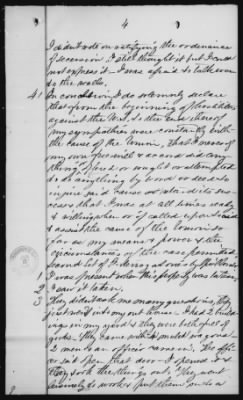 4
I did not vote on ratifying the ordinance
of secession. I still thought it but I did
not express it. I was afraid to talk even
to the walls.
41 In conclusion I do solemnly declare
that from the beginning of hostilities
against the U.S. to the end thereof
my sympathies were constantly with
the cause of the Union, that I never of
my own free will & accord did any
thing, or would or attempted
to do anything by word or deed to
injure said cause or retard its suc
cess that I was at all times ready
& willing when or if called upon to aid
& assist the cause of the Union so
far as my means & power & the
circumstances of the case permitted
2nd Set of
1 I was present when this property was taken,
2 I saw it taken.
3 They didn't ask me many questions, they
just went into my out house. I had 2 build
ings in my yard & they were both full of
goods. They came with a
2 men & an officer came in. The offi
cer said open that door & I opened it &
they took the things out. They went
to work & put them on to a